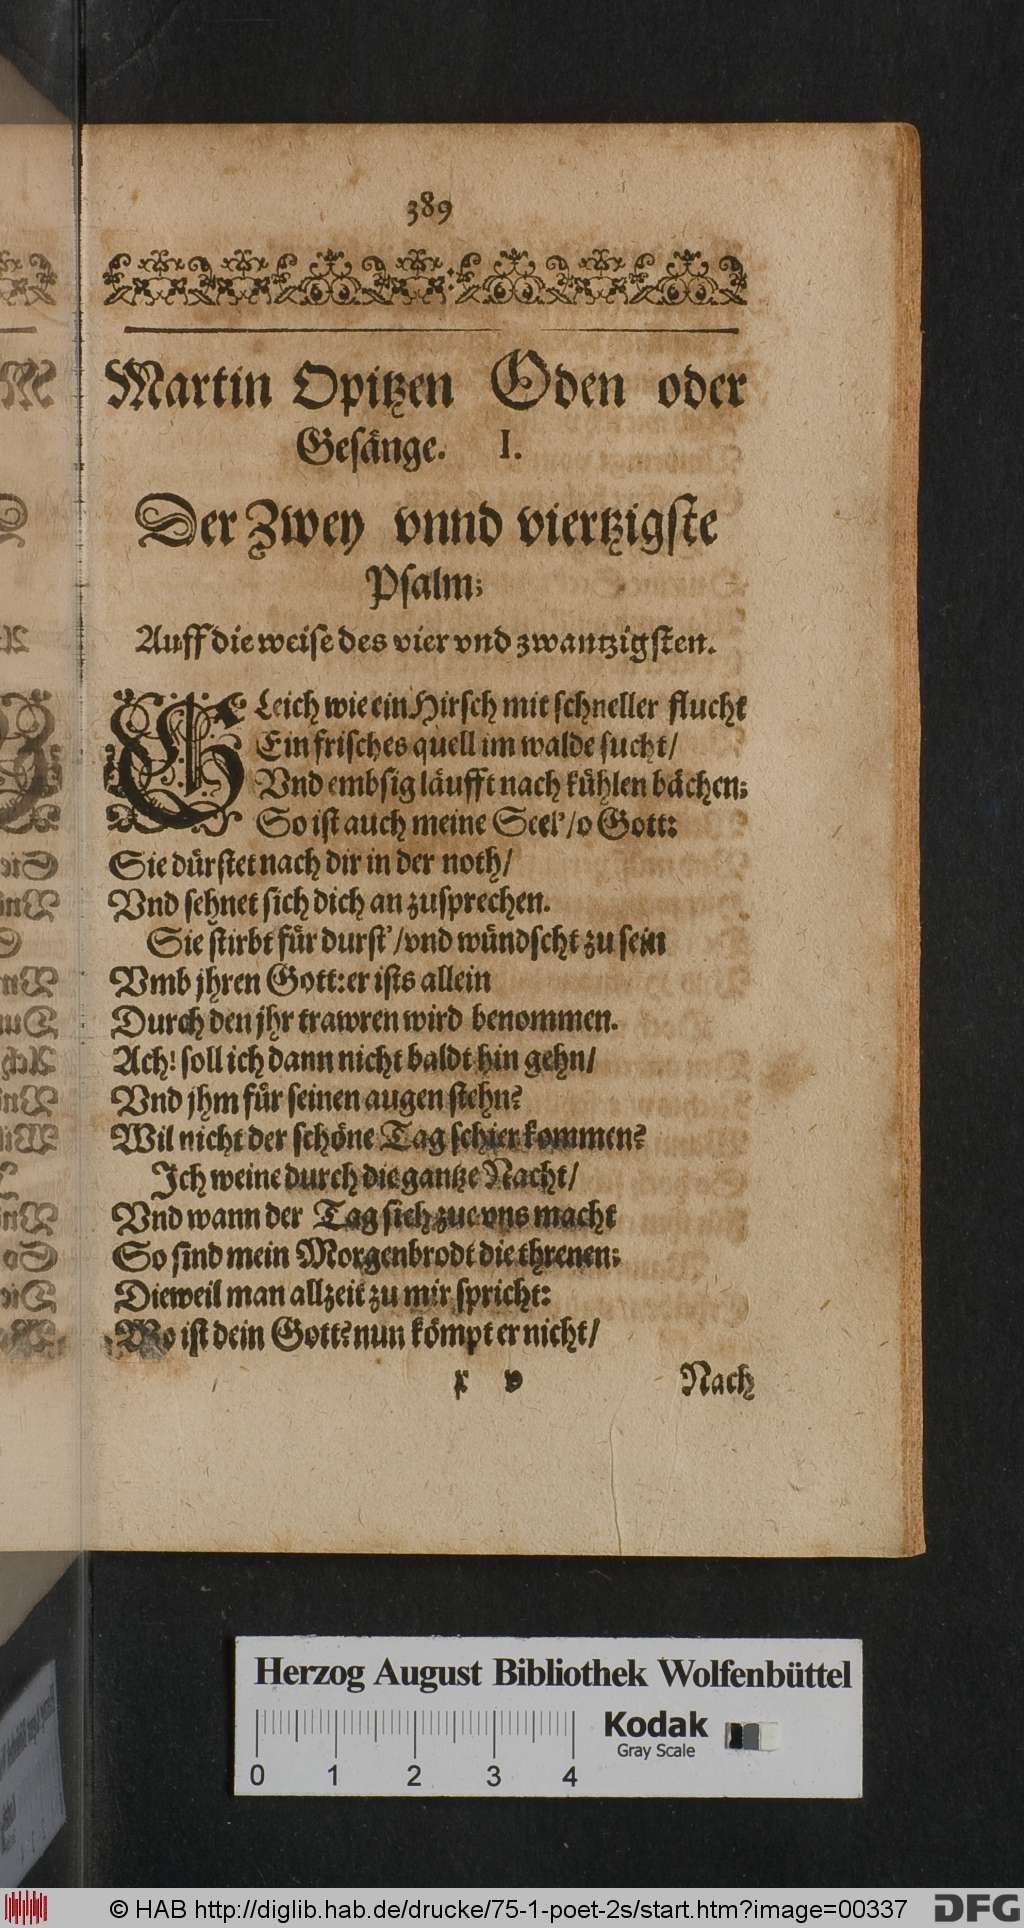 389
Martin Opitzen Oden oder
Gesänge. I.
Der Zwey vnnd viertzigste
Psalm;
Auff die weise des vier vnd zwantzigsten.
GLeich wie ein Hirsch mit schneller flucht
Ein frisches quell im walde sucht/
Vnd embsig läufft nach kühlen bächen;
So ist auch meine Seel'/o Gott:
Sie dürstet nach dir in der noth/
Vnd sehnet sich dich an zusprechen.
Sie stirbt für durst'/vnd wündscht zu sein
Vmb jhren Gott: er ists allein
Durch den jhr trawren wird benommen.
Ach! soll ich dann nicht baldt hin gehn/
Vnd jhm für seinen augen stehn?
Wil nicht der schöne Tag schier kommen?
Ich weine durch die gantze Nacht/
Vnd wann der Tag sich zue vns macht
So sind mein Morgenbrodt die threnen;
Dieweil man allzeit zu mir spricht:
Wo ist dein Gott? nun kömpt er nicht/
x v Nach
Herzog August Bibliothek Wolfenbüttel
Kodak
Gray Scale
0 1 2 3 4
© HAB http://diglib.hab.de/drucke/75-1-poet-2s/start.htm?image=00337
DFG